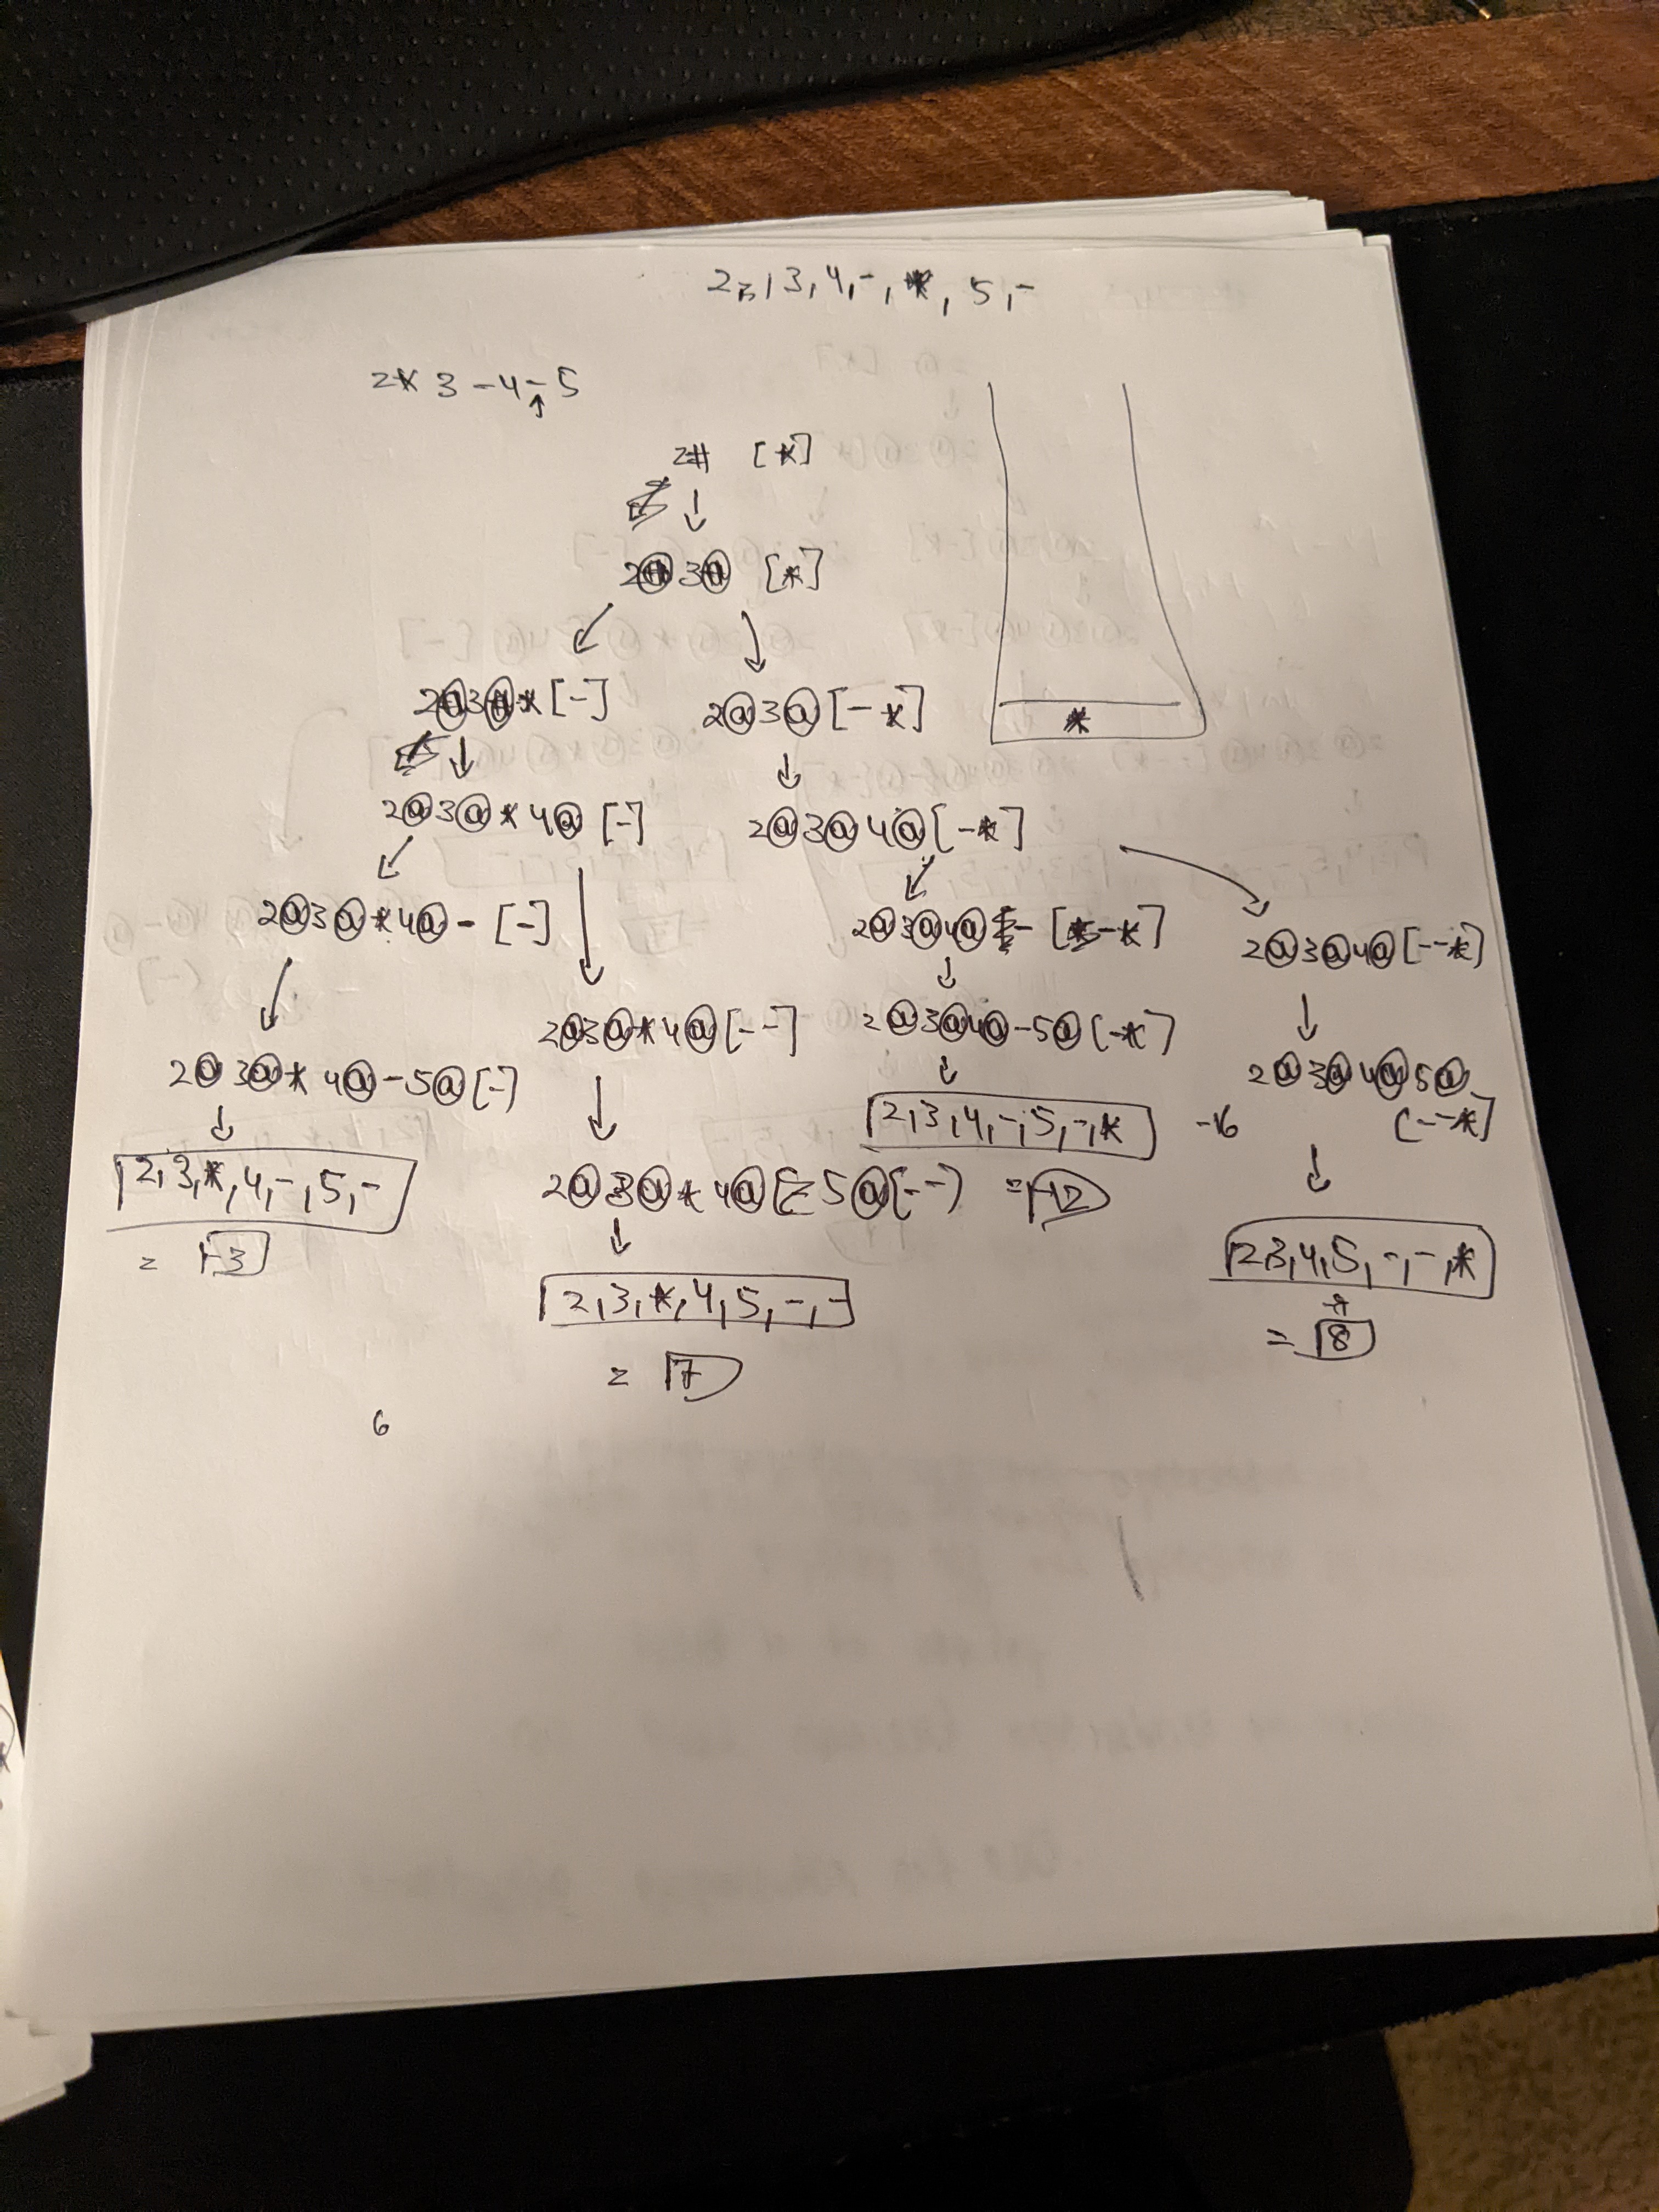 2,3,4,-,*,5,-
2*3-4-5
2# [*]
2@3@ [*]
2@3@* [-]
2@3@ [-*]
2@3@*4@ [-]
2@3@4@ [-*]
2@3@*4@- [-]
2@3@4@- [-*]
2@3@4@ [--*]
2@3@*4@ [--]
2@3@4@-5@ [-*]
2@3@*4@-5@ [-]
2@3@4@5@
[--*]
2,3,4,-,5,-,* -16
2,3,*,4,-,5,-
2@3@*4@5@ [--] = -12
= -3
2,3,4,5,-,-,*
2,3,*,4,5,-,-
= 8
= 7
6
*